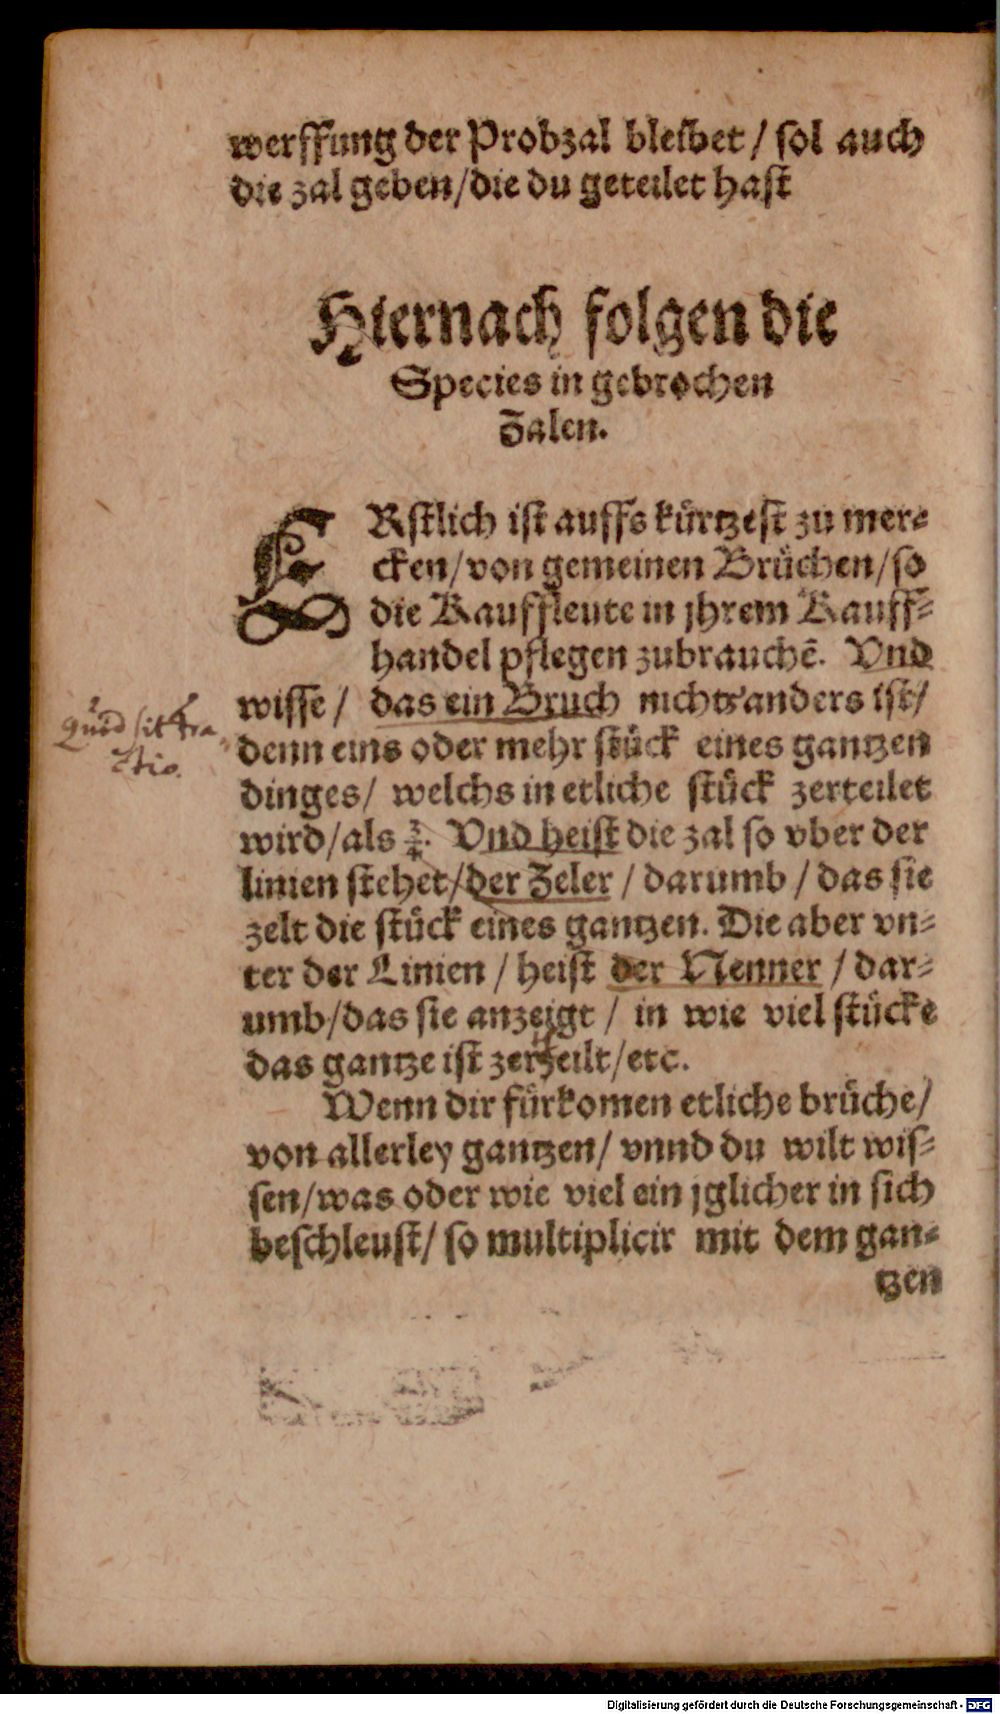 werffung der Probzal bleibet / sol auch
die zal geben/die du geteilet hast
Hiernach folgen die
Species in gebrochen
Zalen.
ERstlich ist auffs kürtzest zu mer⸗
cken/von gemeinen Brüchen/so
die Kauffleute in jhrem Kauff⸗
handel pflegen zubrauchē. Vnd
wisse / das ein Bruch nichts anders ist/
Quid sit fra
ctio.
denn eins oder mehr stück eines gantzen
dinges/ welchs in etliche stück zerteilet
wird/als ¾. Vnd heist die zal so vber der
linien stehet/der Zeler / darumb / das sie
zelt die stück eines gantzen. Die aber vn⸗
ter der Linien / heist der Nenner / dar⸗
umb/das sie anzeigt / in wie viel stücke
das gantze ist zerteilt/etc.
Wenn dir fürkomen etliche brüche/
von allerley gantzen/ vnnd du wilt wis⸗
sen/was oder wie viel ein jglicher in sich
beschleust/ so multiplicir mit dem gan⸗
tzen
Digitalisierung gefördert durch die Deutsche Forschungsgemeinschaft - DFG